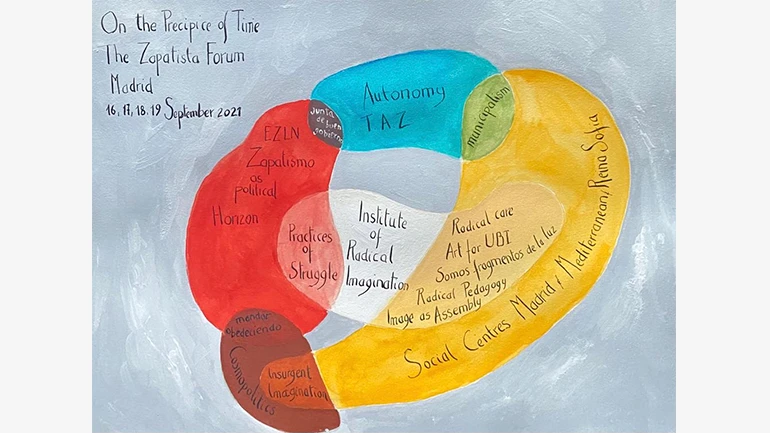 On the Precipice of Time
The Zapatista Forum
Madrid
16, 17, 18, 19 September 2021
Autonomy
TAZ
municipalism
junta
de buen
gobierno
EZLN
Zapatismo
as
political
Horizon
Practices
of
Struggle
Institute
of
Radical
Imagination
Radical care
Art for UBI
Somos fragmentos de la luz
Radical Pedagogy
Image as Assembly
Social Centres Madrid / Mediterranean / Reina Sofia
mandar
obedeciendo
Cosmopolitics
Insurgent
Imagination